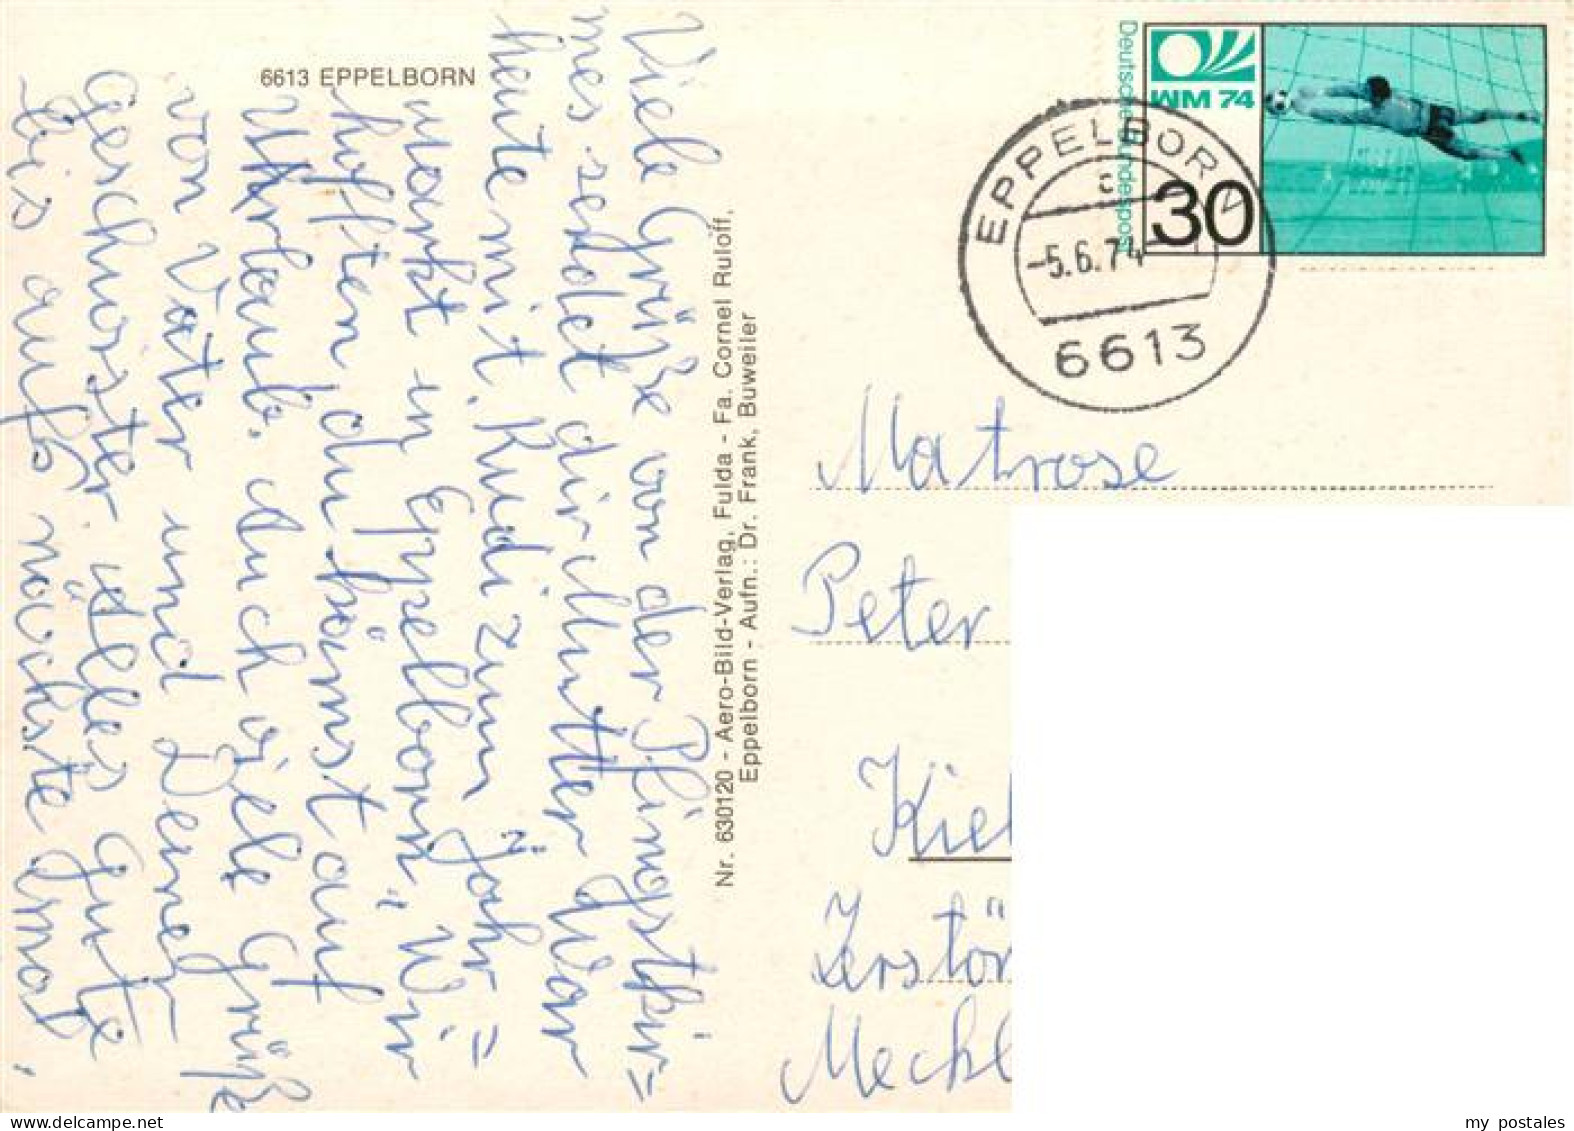 6613 EPPELBORN
Viele Grüße von der Pfingstkir=
mes sendet dir Mutter War
heute mit Rudi zum Jahr=
markt in Eppelborn. Wir
hofften du kämst auf
Urlaub. Auch viele Grüße
von Vater und Deiner
Geschwister. Alles Gute
bis aufs nächste mal.
Nr. 630120 - Aero-Bild-Verlag, Fulda - Fa. Cornel Ruloff,
Eppelborn - Aufn.: Dr. Frank, Buweiler
Deutsche Bundespost
WM 74
30
EPPELBORN
a
-5.6.74
6613
Matrose
Peter
Kiel
Zerstör
Meckl
my postales